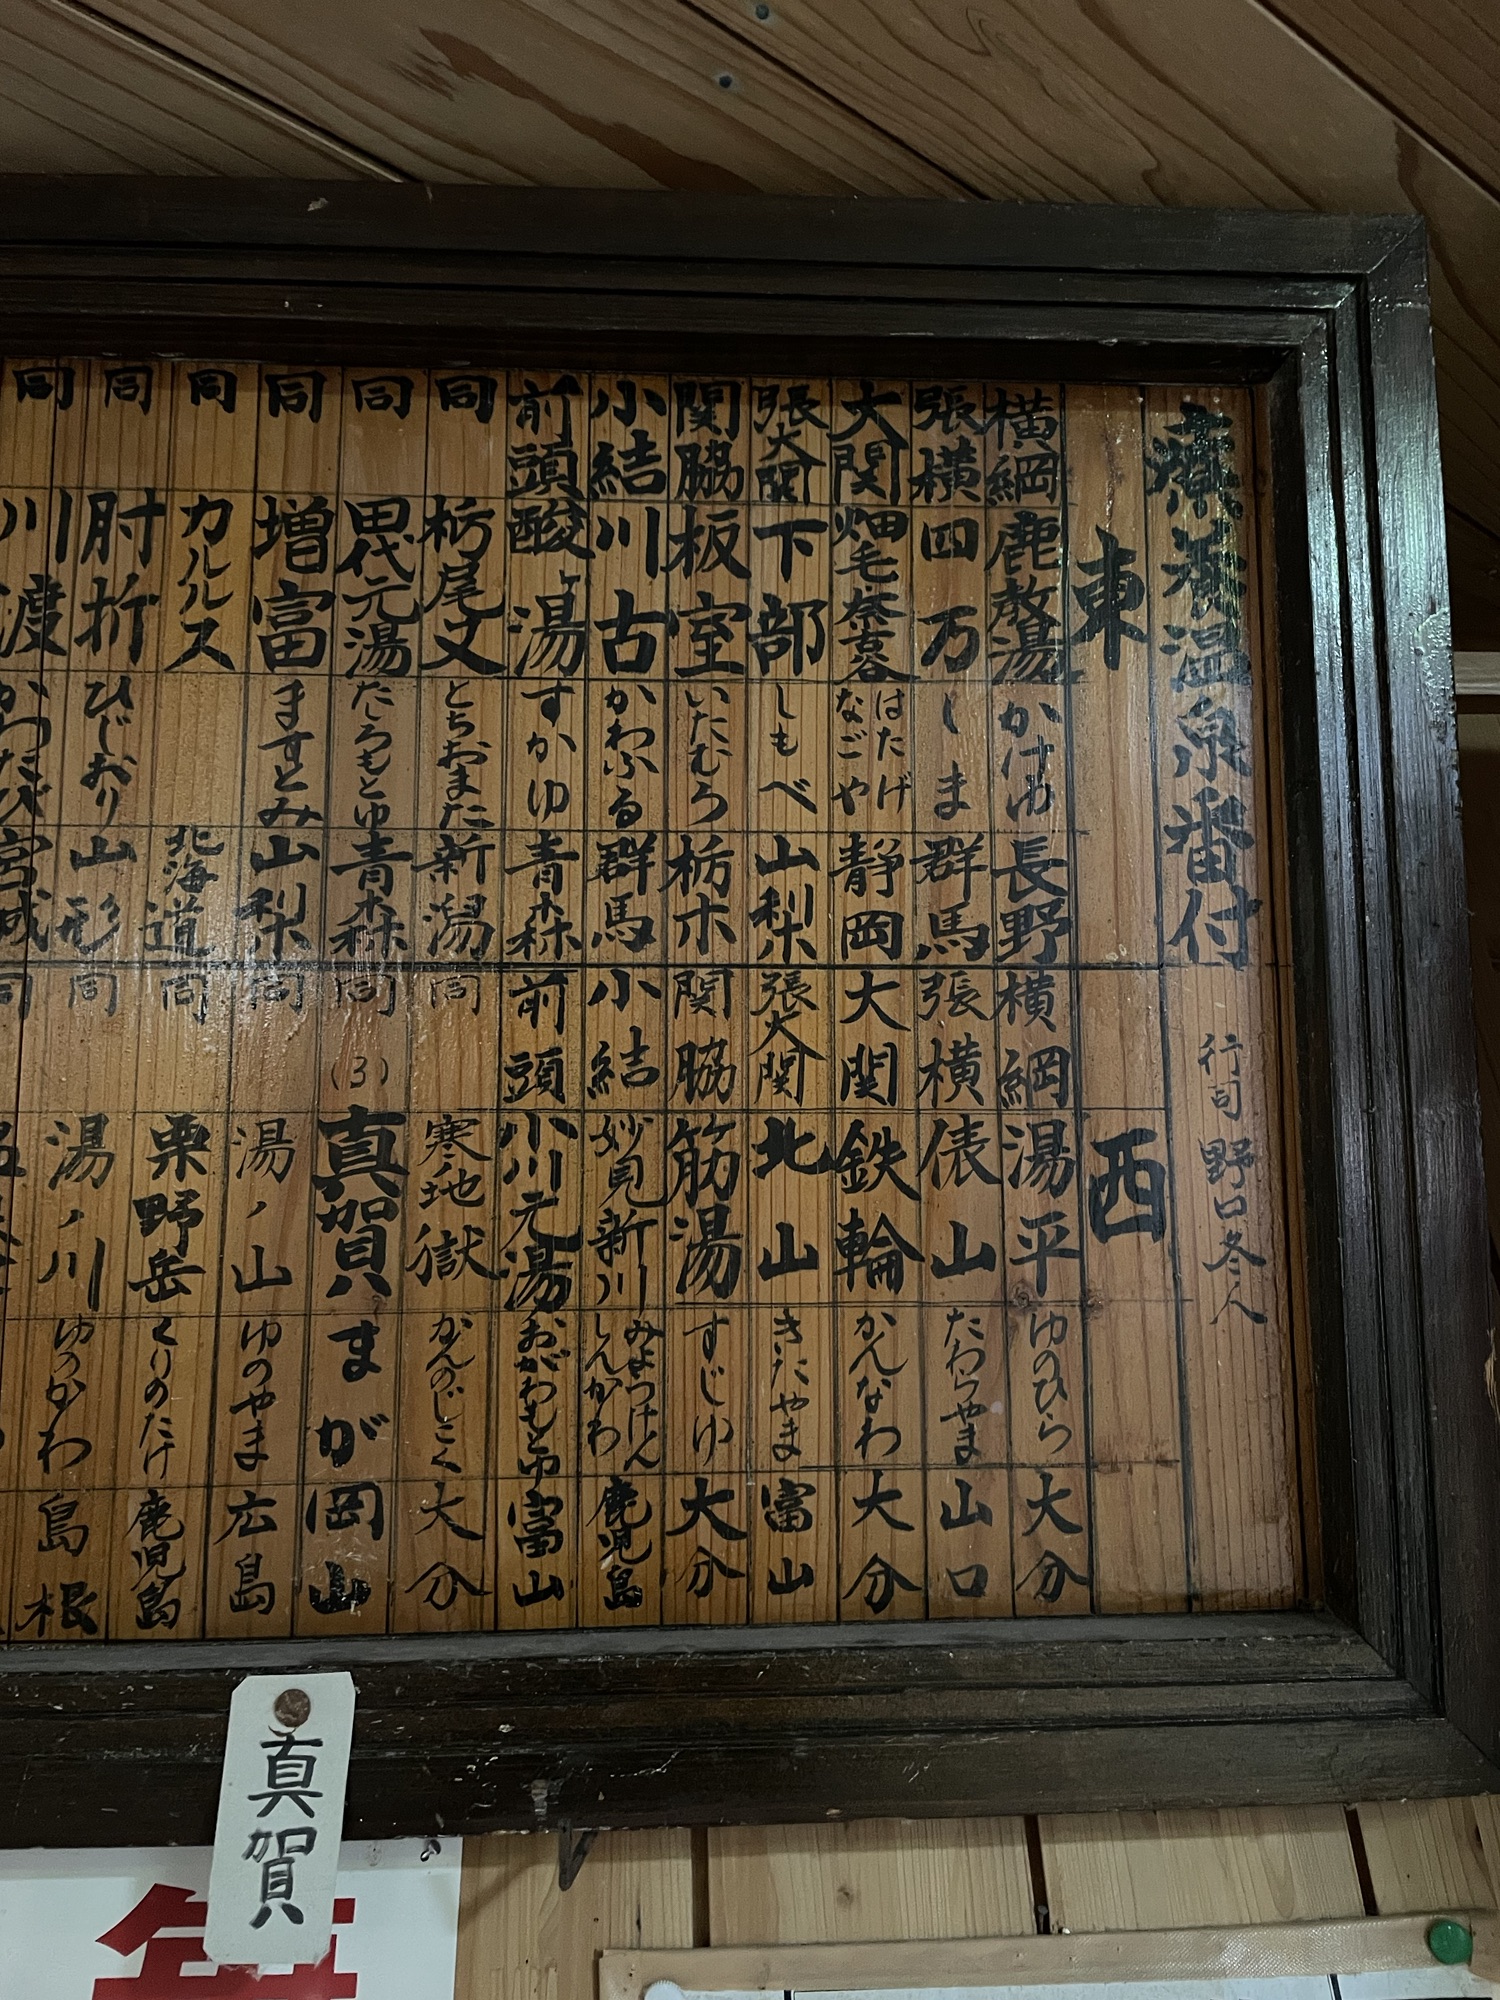 療養温泉番付
行司 野口冬人
東
横綱 鹿教湯 かけゆ 長野
張横 四万 しま 群馬
大関 畑毛奈古谷 はたげ なごや 静岡
張大関 下部 しもべ 山梨
関脇 板室 いたむろ 栃木
小結 川古 かわふる 群馬
前頭 酸ヶ湯 すかゆ 青森
同 栃尾又 とちおまた 新潟
同 田代元湯 たしろもとゆ 青森
同 増富 ますとみ 山梨
同 カルルス 北海道
同 肘折 ひじおり 山形
同 川渡 かわたび 宮城
西
横綱 湯平 ゆのひら 大分
張横 俵山 たわらやま 山口
大関 鉄輪 かんなわ 大分
張大関 北山 きたやま 富山
関脇 筋湯 すじゆ 大分
小結 妙見新川 みょうけん しんかわ 鹿児島
前頭 小川元湯 おがわもとゆ 富山
同 寒地獄 かんのじごく 大分
同 (3) 真賀 まが 岡山
同 湯ノ山 ゆのやま 広島
同 栗野岳 くりのたけ 鹿児島
同 湯ノ川 ゆのかわ 島根
同
真賀